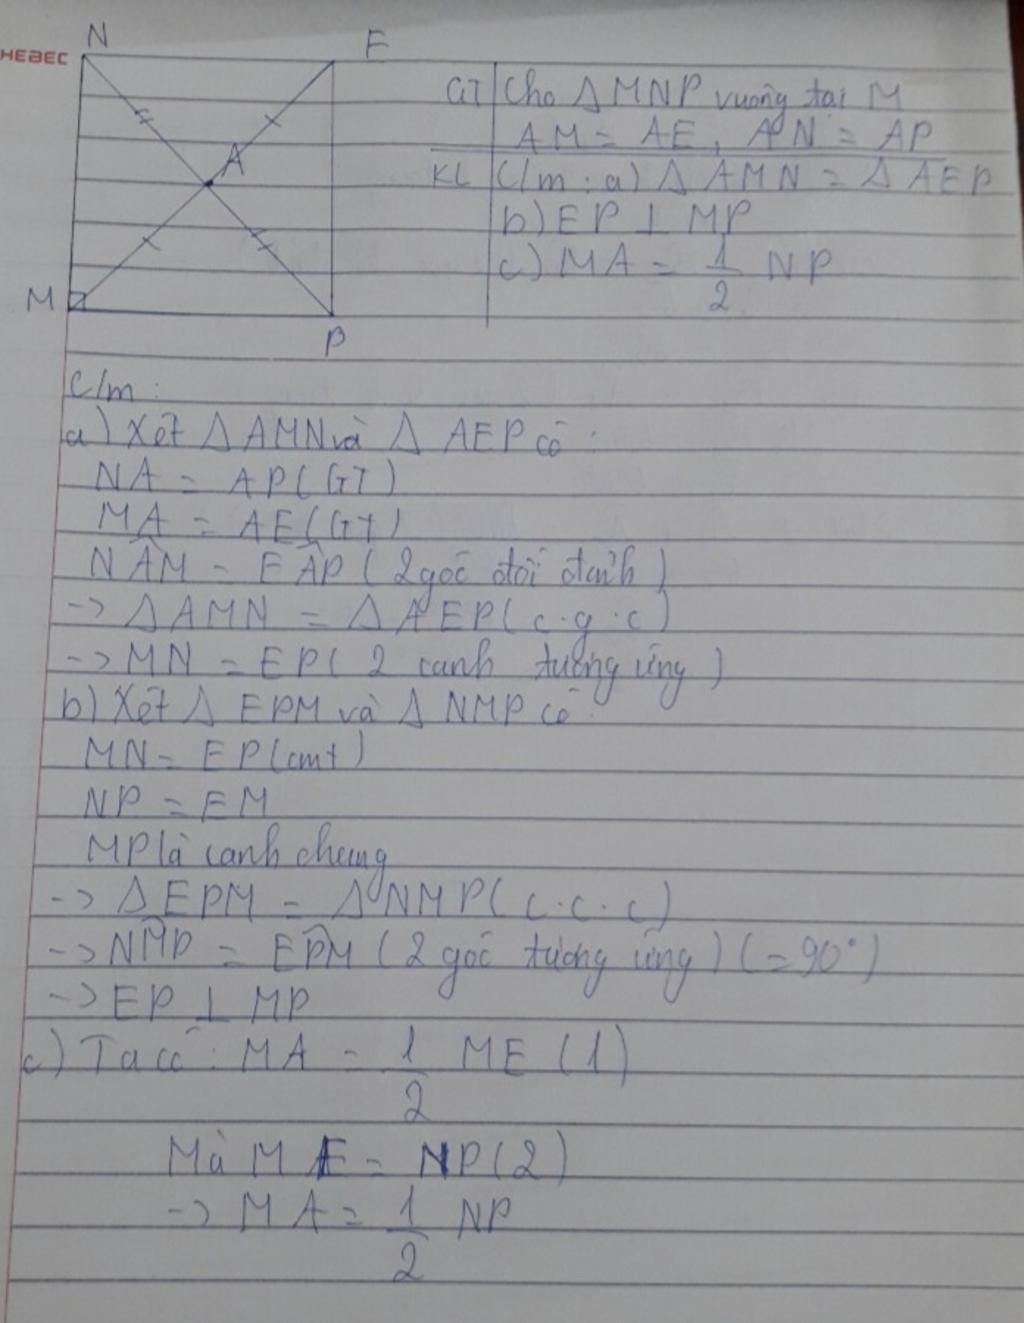 HEBEC
N
E
A
M
P
GT Cho Δ MNP vuông tại M
AM = AE, AN = AP
KL C/m : a) Δ AMN = Δ AEP
b) EP ⊥ MP
c) MA = 1/2 NP
C/m :
a) Xét Δ AMN và Δ AEP có :
NA = AP (GT)
MA = AE (GT)
NÂM = EÂP (2 góc đối đỉnh)
-> Δ AMN = Δ AEP (c.g.c)
-> MN = EP (2 cạnh tương ứng)
b) Xét Δ EPM và Δ NMP có :
MN = EP (cmt)
NP = EM
MP là cạnh chung
-> Δ EPM = Δ NMP (c.c.c)
-> NM̂P = EP̂M (2 góc tương ứng) (= 90°)
-> EP ⊥ MP
c) Ta có : MA = 1/2 ME (1)
Mà ME = NP (2)
-> MA = 1/2 NP